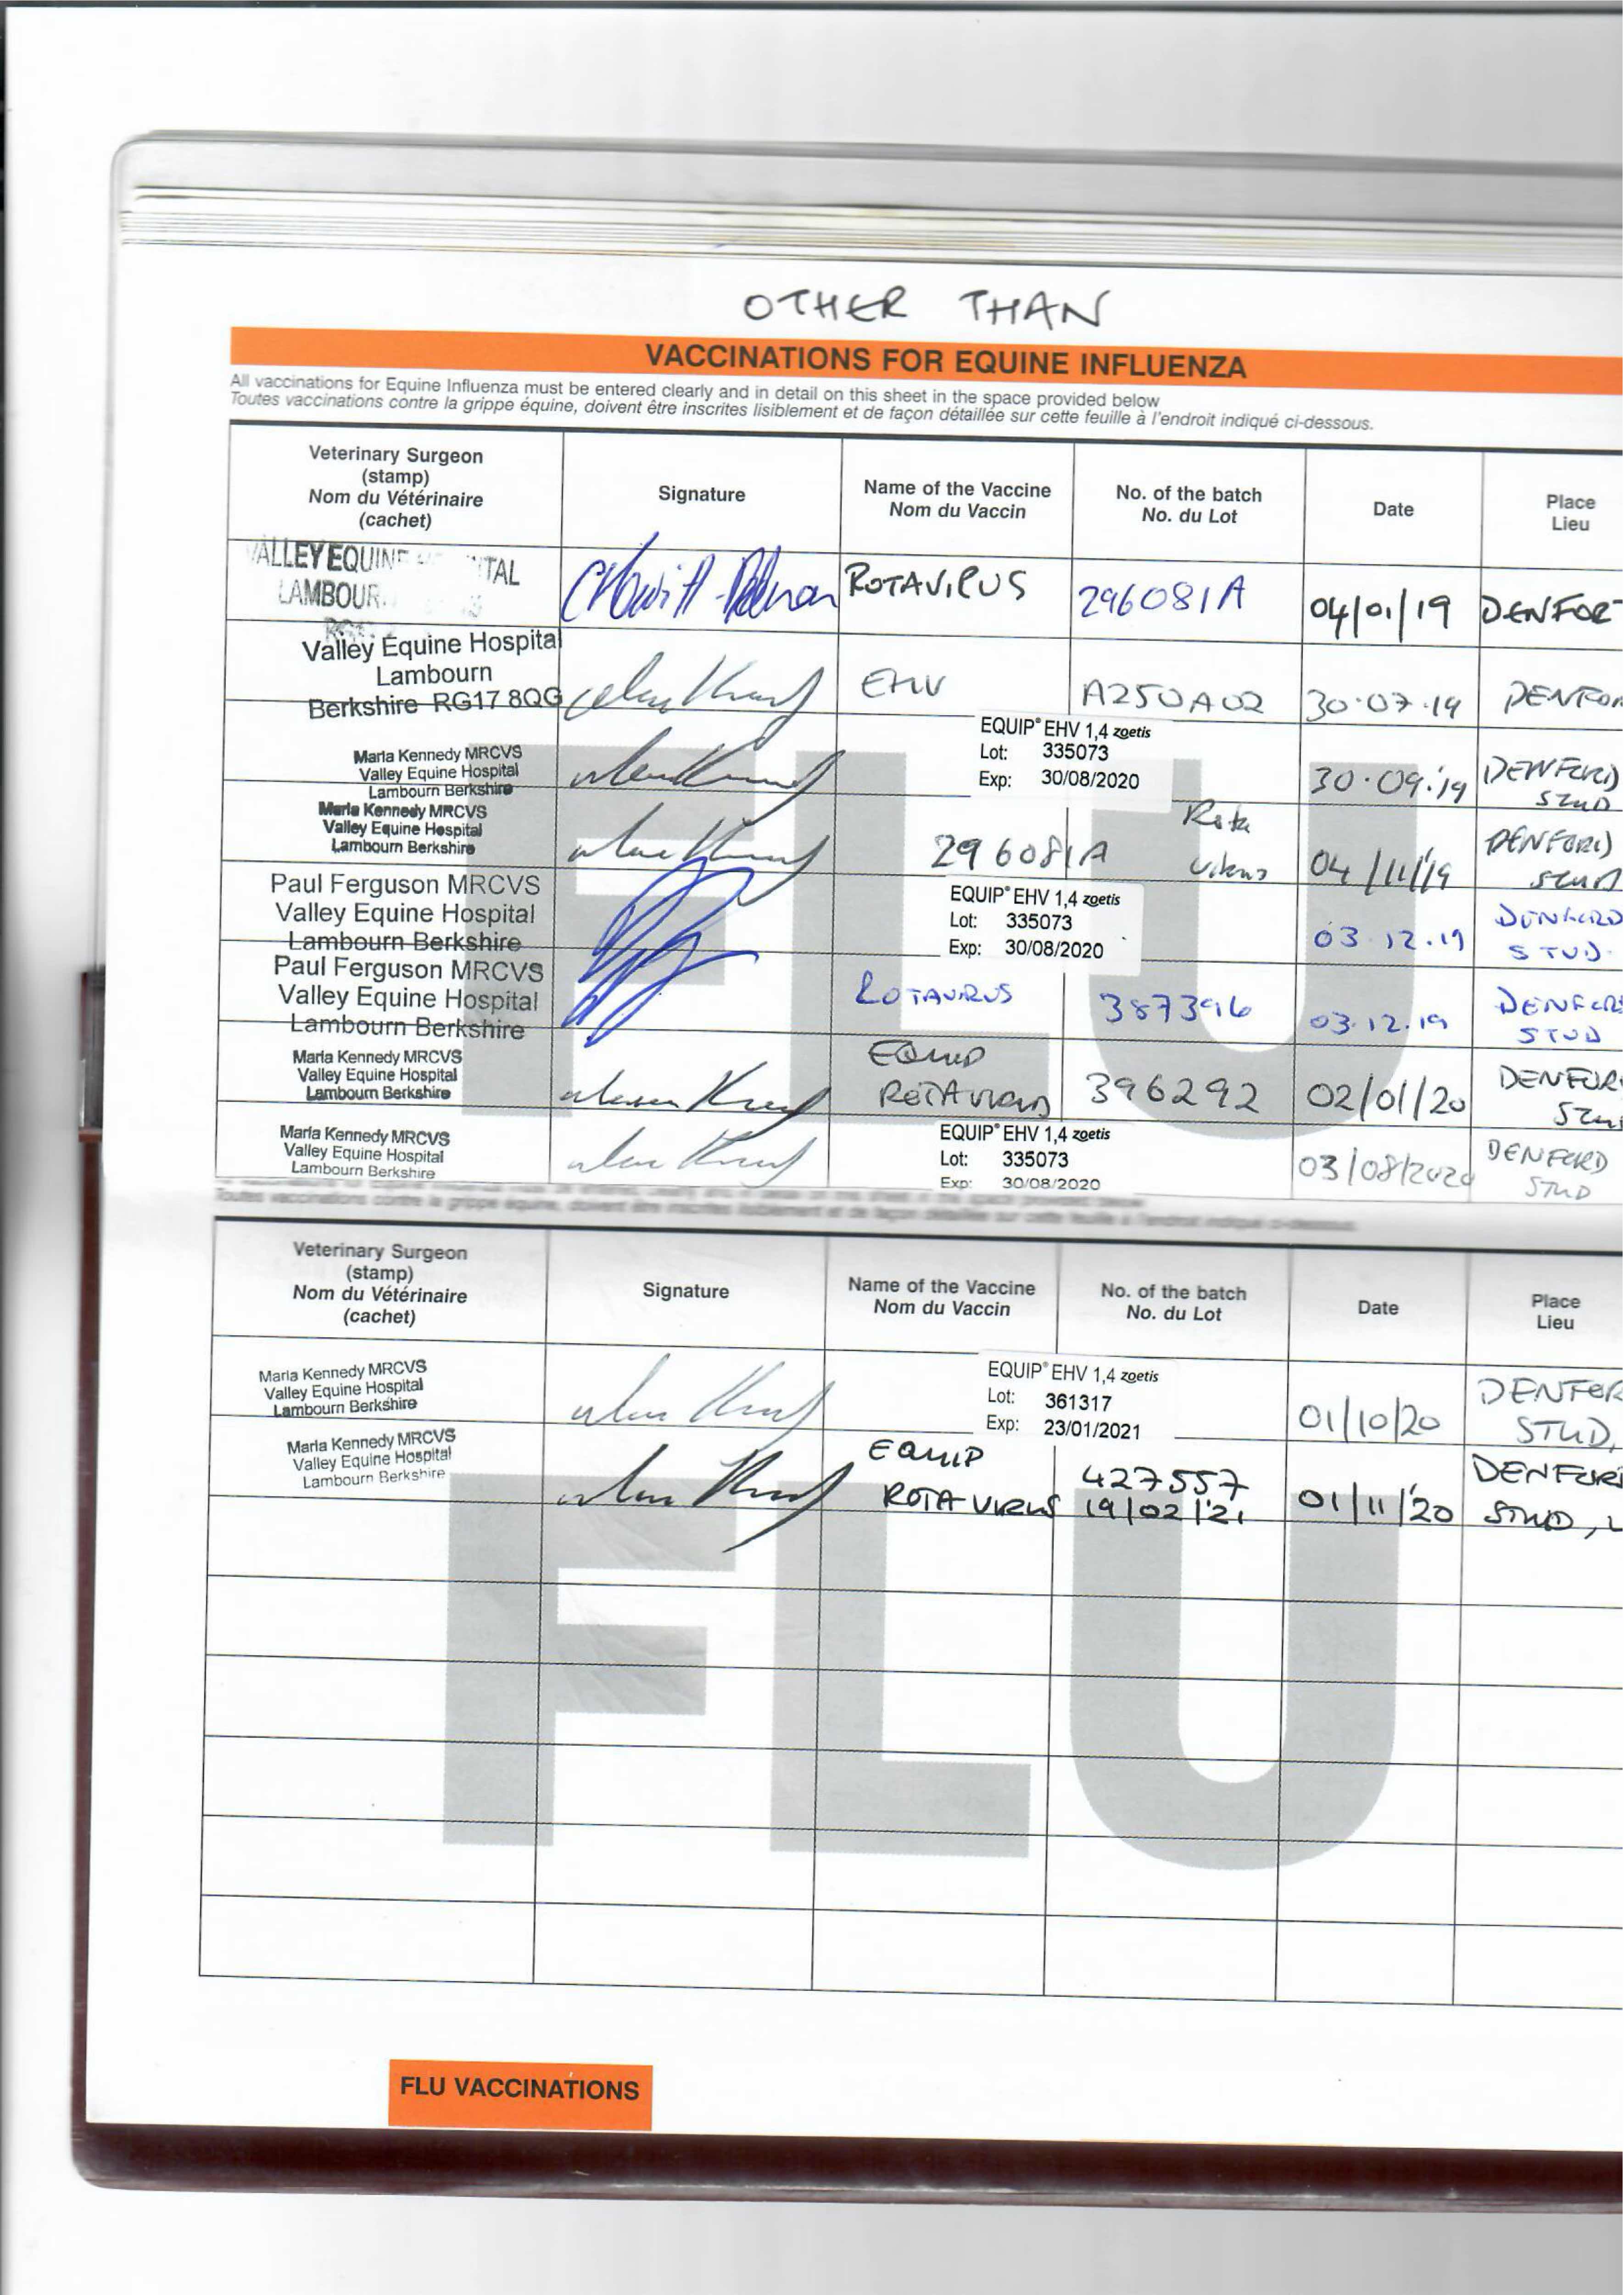 OTHER THAN
VACCINATIONS FOR EQUINE INFLUENZA
All vaccinations for Equine Influenza must be entered clearly and in detail on this sheet in the space provided below
Toutes vaccinations contre la grippe équine, doivent être inscrites lisiblement et de façon détaillée sur cette feuille à l'endroit indiqué ci-dessous.
Veterinary Surgeon
(stamp)
Nom du Vétérinaire
(cachet)
Signature
Name of the Vaccine
Nom du Vaccin
No. of the batch
No. du Lot
Date
Place
Lieu
VALLEY EQUINE
LAMBOUR
ROTAVIRUS
296081A
04/01/19
DENFOR
Valley Equine Hospital
Lambourn
Berkshire RG17 8QG
EHV
A250A02
30.07.19
DENFOR
Maria Kennedy MRCVS
Valley Equine Hospital
Lambourn Berkshire
EQUIP® EHV 1,4 zoetis
Lot: 335073
Exp: 30/08/2020
30.09.19
DENFORD
STUD
Maria Kennedy MRCVS
Valley Equine Hospital
Lambourn Berkshire
296081A
Rota
Virus
04/11/19
DENFORD
STUD
Paul Ferguson MRCVS
Valley Equine Hospital
Lambourn Berkshire
EQUIP® EHV 1,4 zoetis
Lot: 335073
Exp: 30/08/2020
03.12.19
DENFORD
STUD.
Paul Ferguson MRCVS
Valley Equine Hospital
Lambourn Berkshire
ROTAVIRUS
387396
03.12.19
DENFORD
STUD
Maria Kennedy MRCVS
Valley Equine Hospital
Lambourn Berkshire
EQUIP
ROTAVIRUS
396292
02/01/20
DENFOR
STUD
Maria Kennedy MRCVS
Valley Equine Hospital
Lambourn Berkshire
EQUIP® EHV 1,4 zoetis
Lot: 335073
Exp: 30/08/2020
03/08/2020
DENFORD
STUD
Toutes vaccinations contre la grippe équine, doivent être inscrites lisiblement et de façon détaillée sur cette feuille à l'endroit indiqué ci-dessous.
Veterinary Surgeon
(stamp)
Nom du Vétérinaire
(cachet)
Signature
Name of the Vaccine
Nom du Vaccin
No. of the batch
No. du Lot
Date
Place
Lieu
Maria Kennedy MRCVS
Valley Equine Hospital
Lambourn Berkshire
EQUIP® EHV 1,4 zoetis
Lot: 361317
Exp: 23/01/2021
01/10/20
DENFOR
STUD,
Maria Kennedy MRCVS
Valley Equine Hospital
Lambourn Berkshire
EQUIP
ROTAVIRUS
427557
19/02/21
01/11/20
DENFORD
STUD, L
FLU
FLU
FLU VACCINATIONS